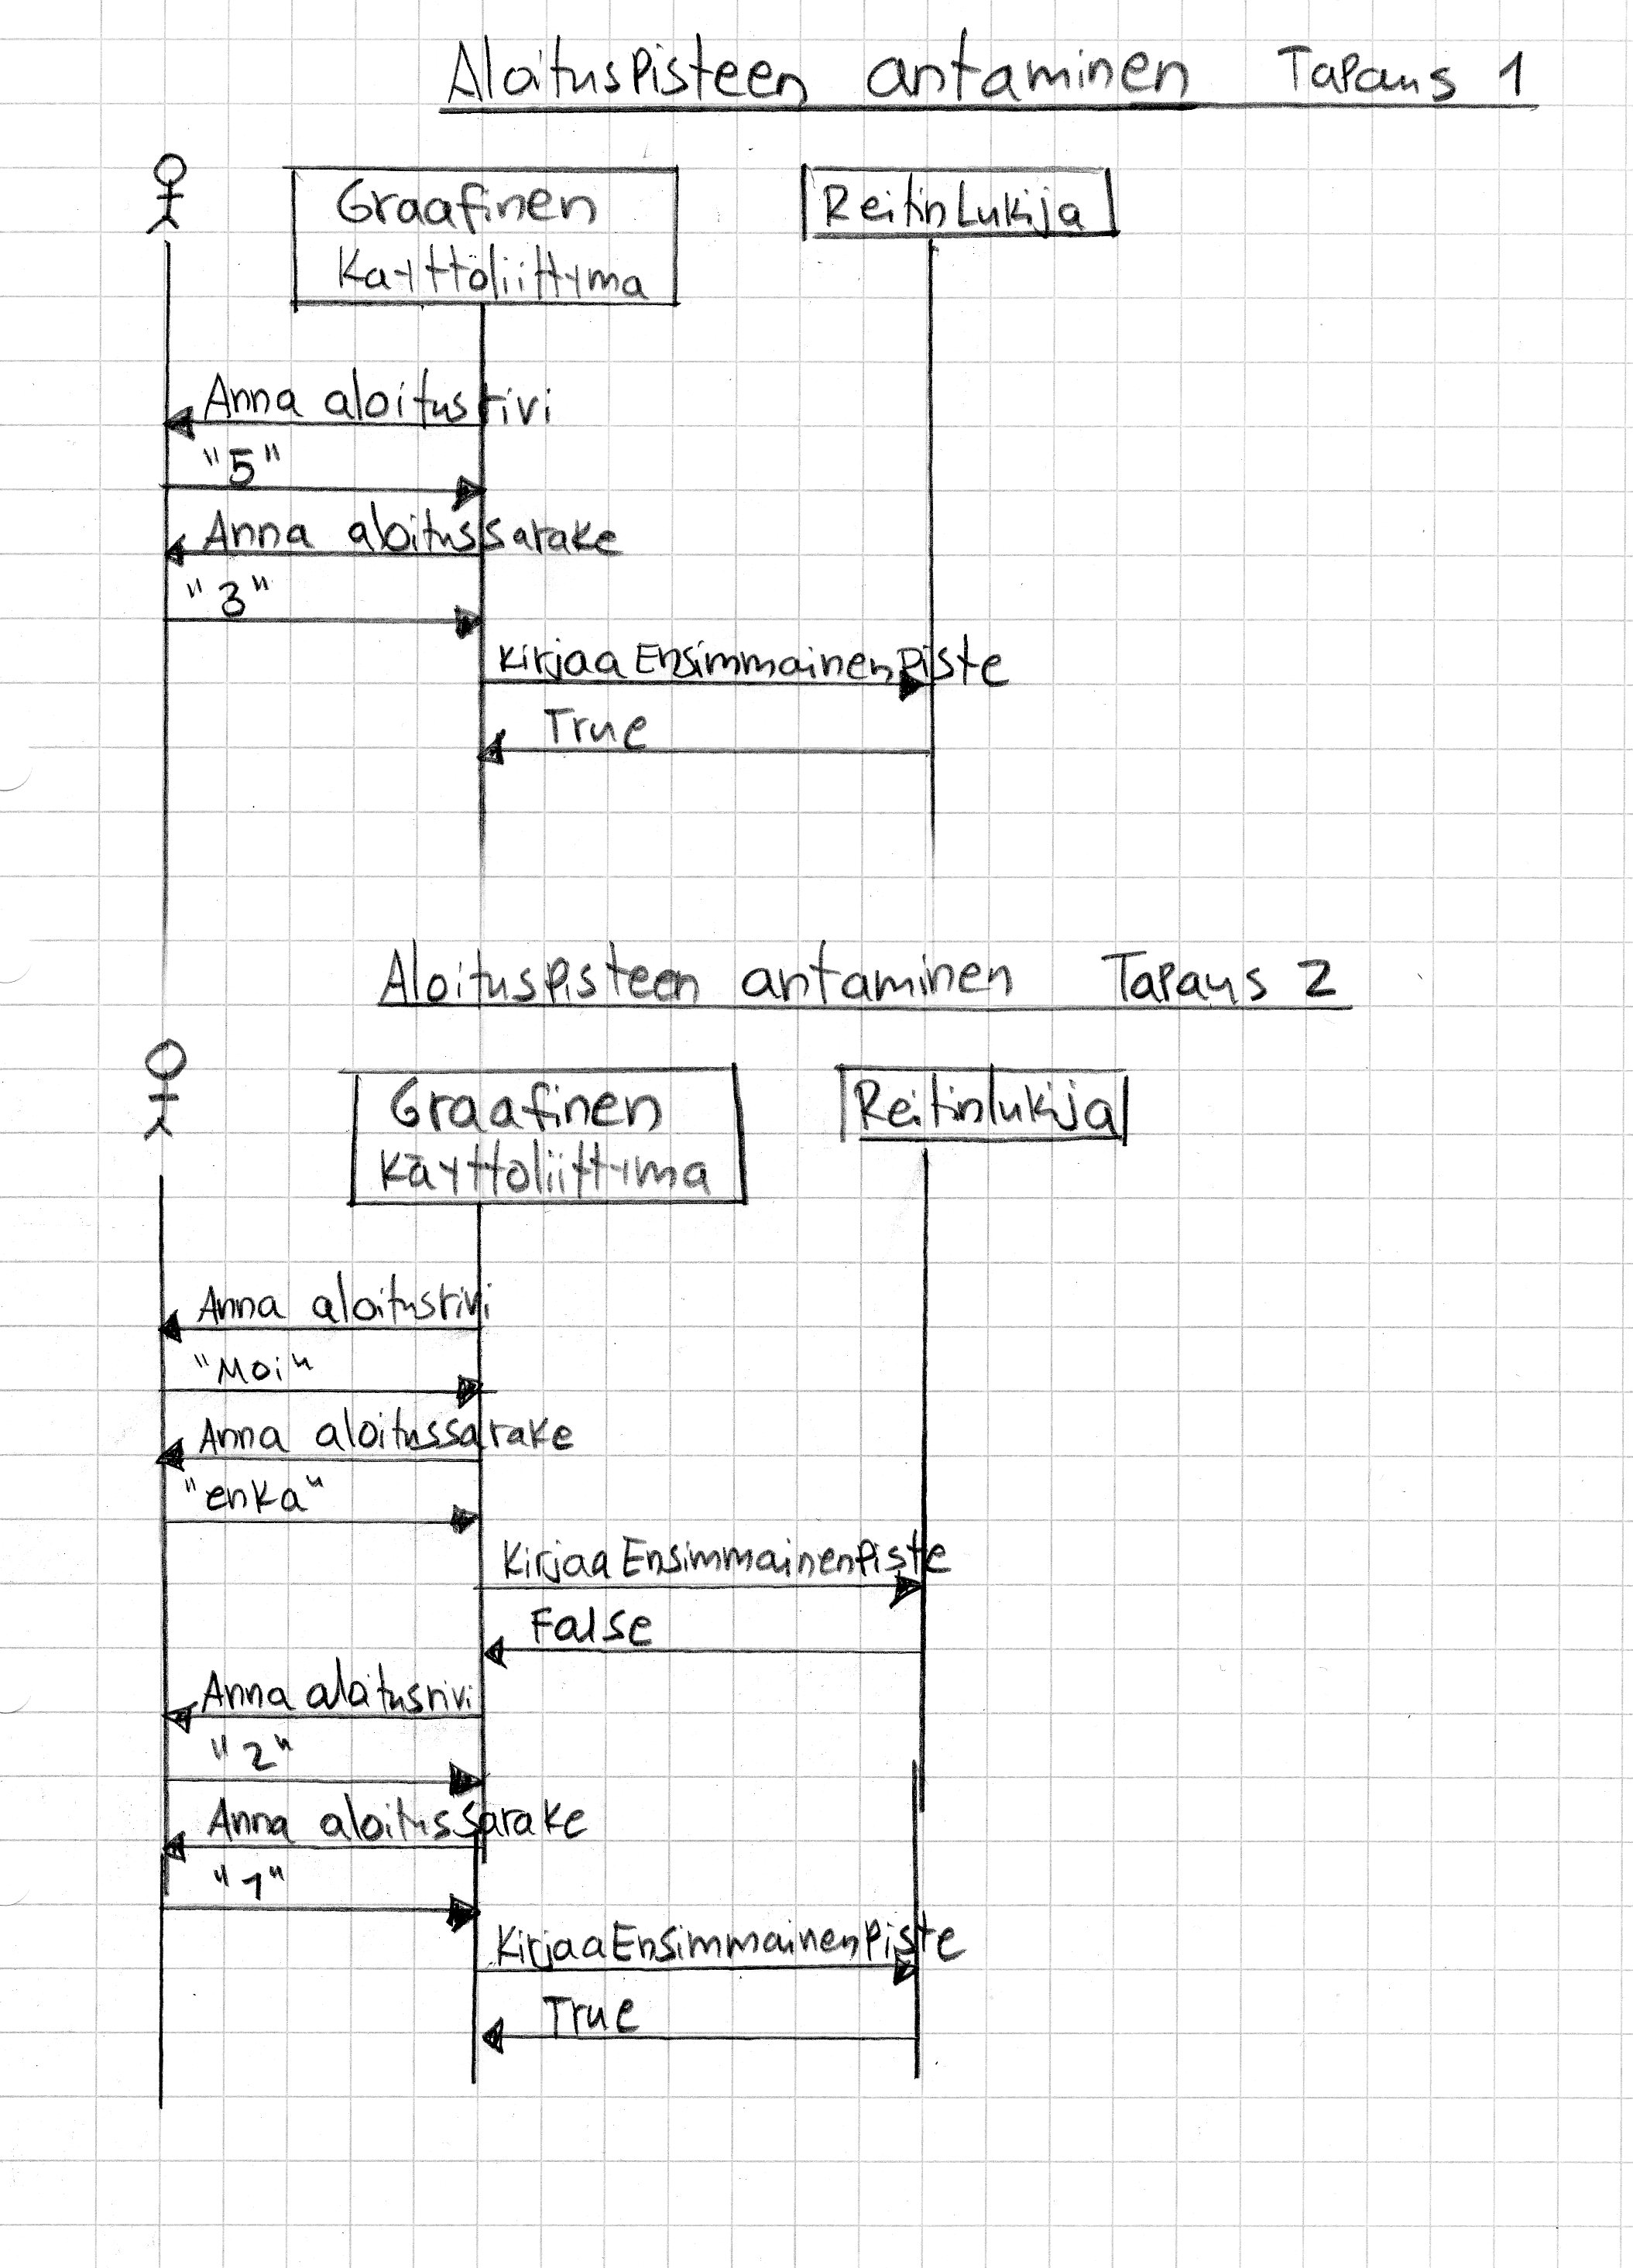 Aloituspisteen antaminen Tapaus 1
Graafinen
Käyttöliittyma
ReitinLukija
Anna aloitusrivi
"5"
Anna aloitussarake
"3"
KirjaaEnsimmainenPiste
True
Aloituspisteen antaminen Tapaus 2
Graafinen
Käyttöliittyma
Reitinlukija
Anna aloitusrivi
"Moi"
Anna aloitussarake
"enka"
KirjaaEnsimmainenPiste
False
Anna aloitusrivi
"2"
Anna aloitussarake
"1"
KirjaaEnsimmainenPiste
True